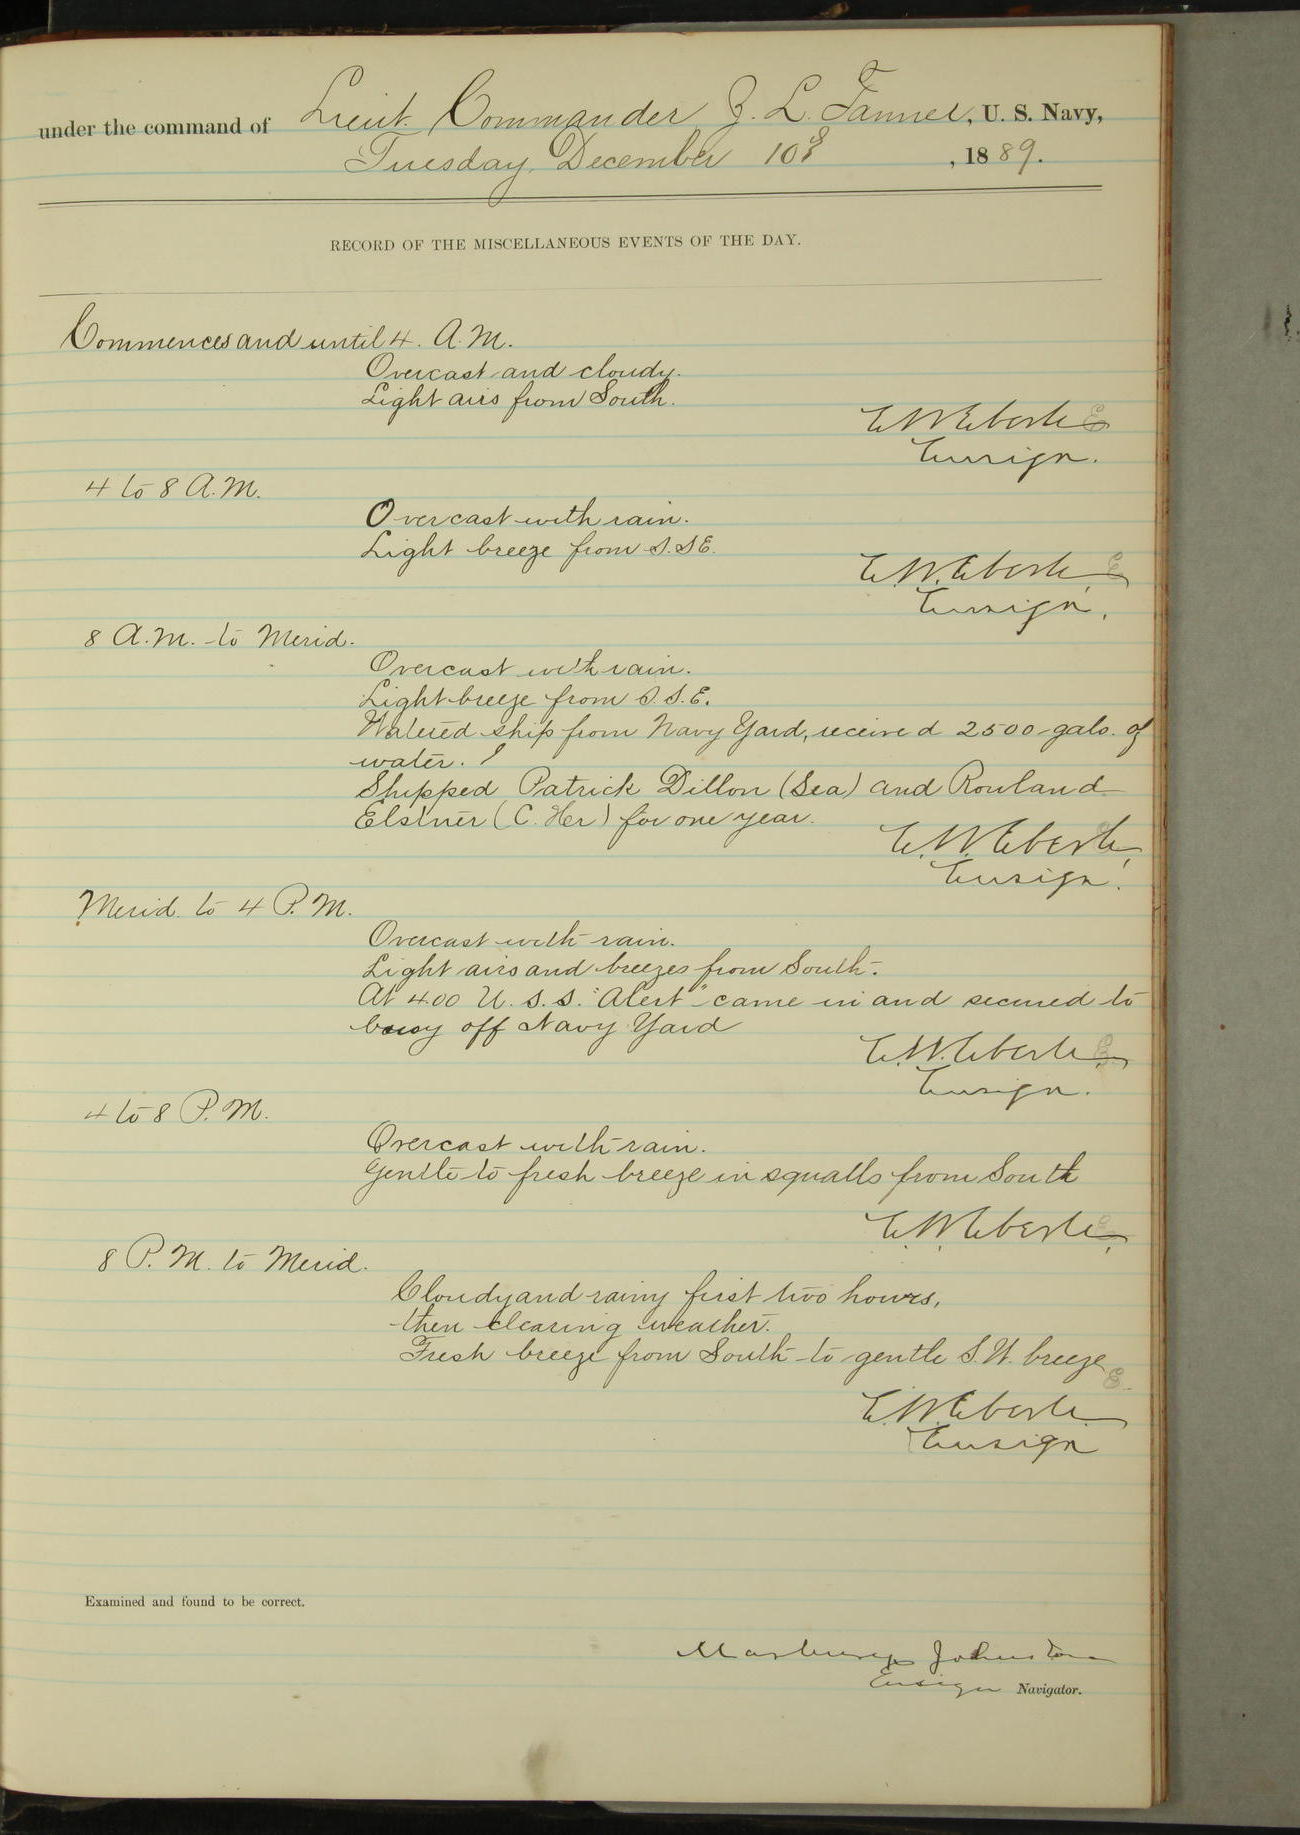 under the command of Lieut. Commander Z. L. Tanner, U. S. Navy,
Tuesday, December 10th, 1889.
RECORD OF THE MISCELLANEOUS EVENTS OF THE DAY.
Commences and until 4. A.M.
Overcast and cloudy.
Light airs from South.
E W Eberle
Ensign.
4 to 8 A.M.
Overcast with rain.
Light breeze from S.SE.
E. W. Eberle,
Ensign.
8 A.M. to Merid.
Overcast with rain.
Light breeze from S.S.E.
Watered ship from Navy Yard, received 2500 gals. of
water.
Shipped Patrick Dillon (Sea) and Rowland
Elstner (C. Her) for one year.
E. W. Eberle,
Ensign.
Merid. to 4 P.M.
Overcast with rain.
Light airs and breezes from South.
At 4.00 U.S.S. "Alert" came in and secured to
buoy off Navy Yard
E. W. Eberle,
Ensign.
4 to 8 P.M.
Overcast with rain.
Gentle to fresh breeze in squalls from South
E. W. Eberle,
8 P.M. to Merid.
Cloudy and rainy first two hours,
then clearing weather.
Fresh breeze from South to gentle S.W. breeze
E. W. Eberle.
Ensign
Examined and found to be correct.
Marbury Johnston
Ensign Navigator.